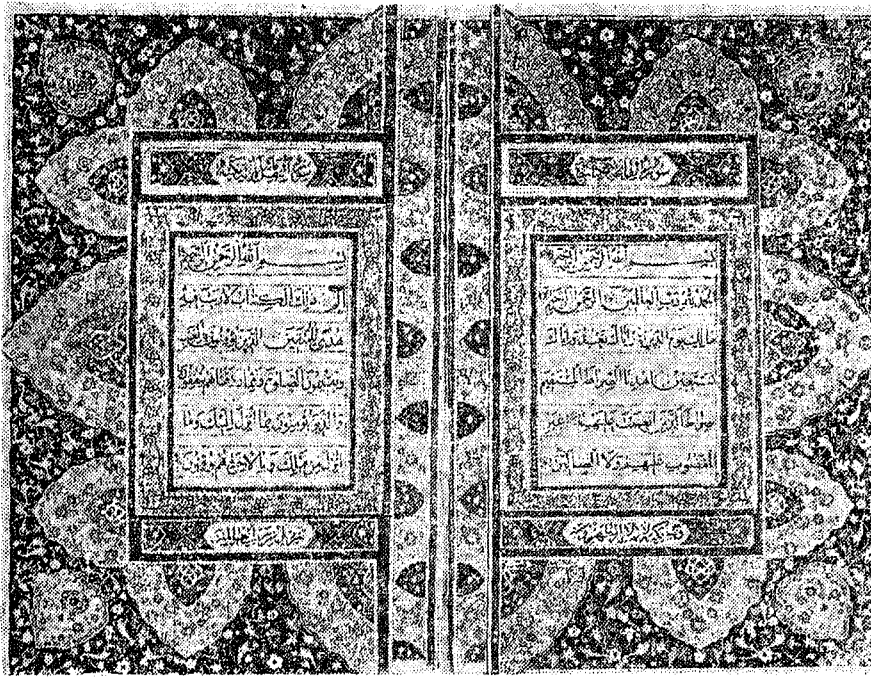 بسم الله الرحمن الرحيم
الحمد لله رب العالمين الرحمن الرحيم
ملك يوم الدين اياك نعبد واياك
نستعين اهدنا الصراط المستقيم
صراط الذين انعمت عليهم غير
المغضوب عليهم ولا الضالين
لا يمسه الا المطهرون
بسم الله الرحمن الرحيم
الم ذلك الكتاب لا ريب فيه
هدى للمتقين الذين يؤمنون بالغيب
ويقيمون الصلوة ومما رزقناهم ينفقون
والذين يؤمنون بما انزل اليك وما
انزل من قبلك وبالاخرة هم يوقنون
تنزيل من رب العالمين